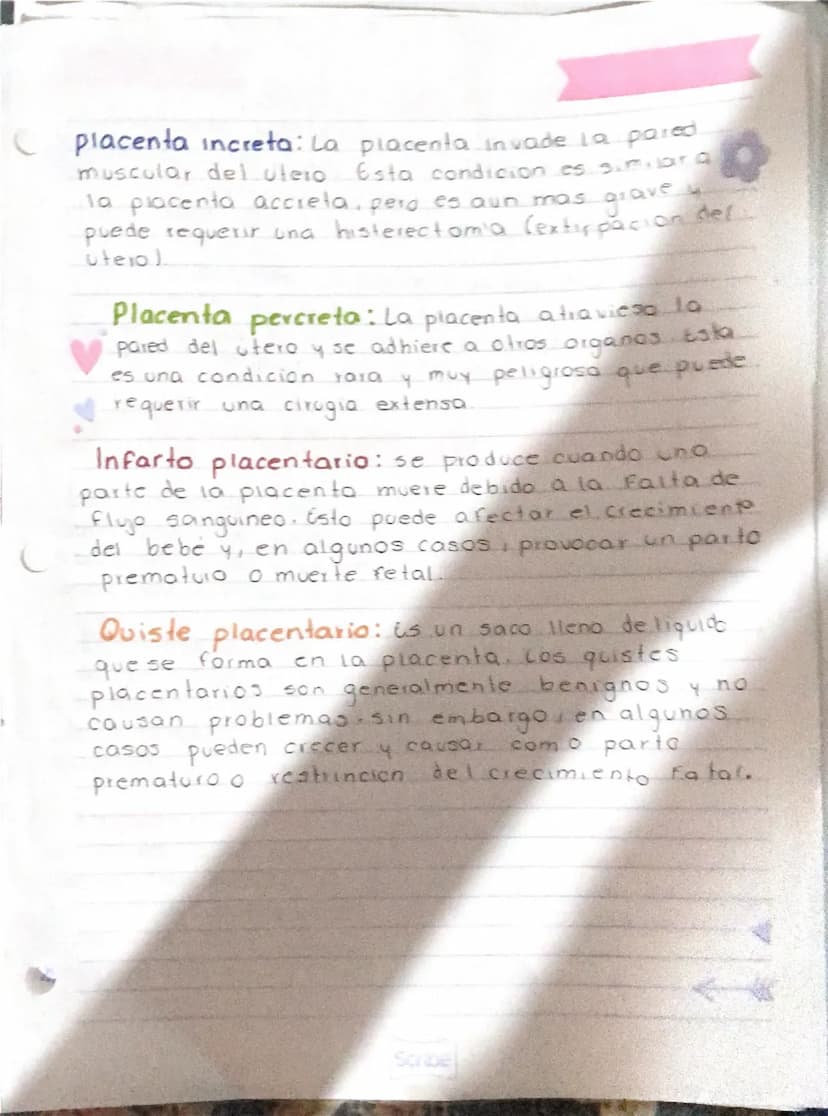 placenta increta: La placenta invade la pared
muscular del utero Esta condicion es similar a
la placenta accreta, pero es aun mas grave y
puede requerir una histerectomia (extirpacion del
utero).
Placenta percreta: La placenta atraviesa la
pared del útero y se adhiere a otros organos Esta
es una condición rara y muy peligrosa que puede
requerir una cirugia extensa.
Infarto placentario: se produce cuando una
parte de la placenta muere debido a la Falta de
flujo sanguineo. Esto puede afectar el crecimiento
del bebé y, en algunos casos, provocar un parto
prematuro o muerte fetal.
Quiste placentario: Es un saco lleno de liquido
que se forma en la placenta. Los quistes
placentarios son generalmente benignos y no
causan problemas. sin embargo, en algunos
casos pueden crecer y causar como parto
prematuro o restrincion del crecimiento Fatal.
Scribe